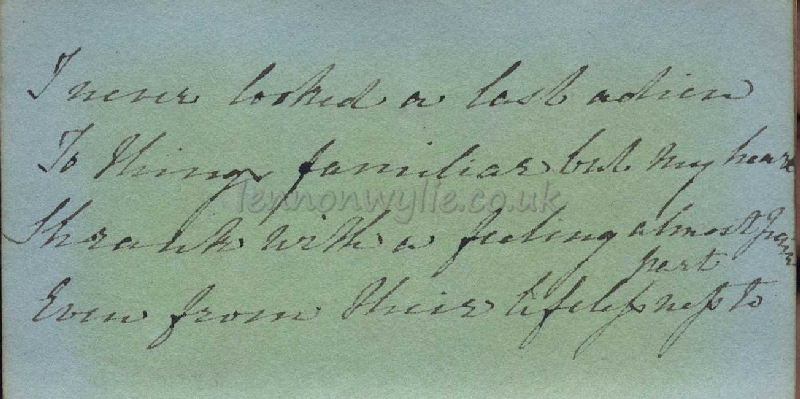 I never looked a last adieu
To things familiar but my heart
Shrank with a feeling almost pain
part
Even from their lifelessness to
lennonwylie.co.uk